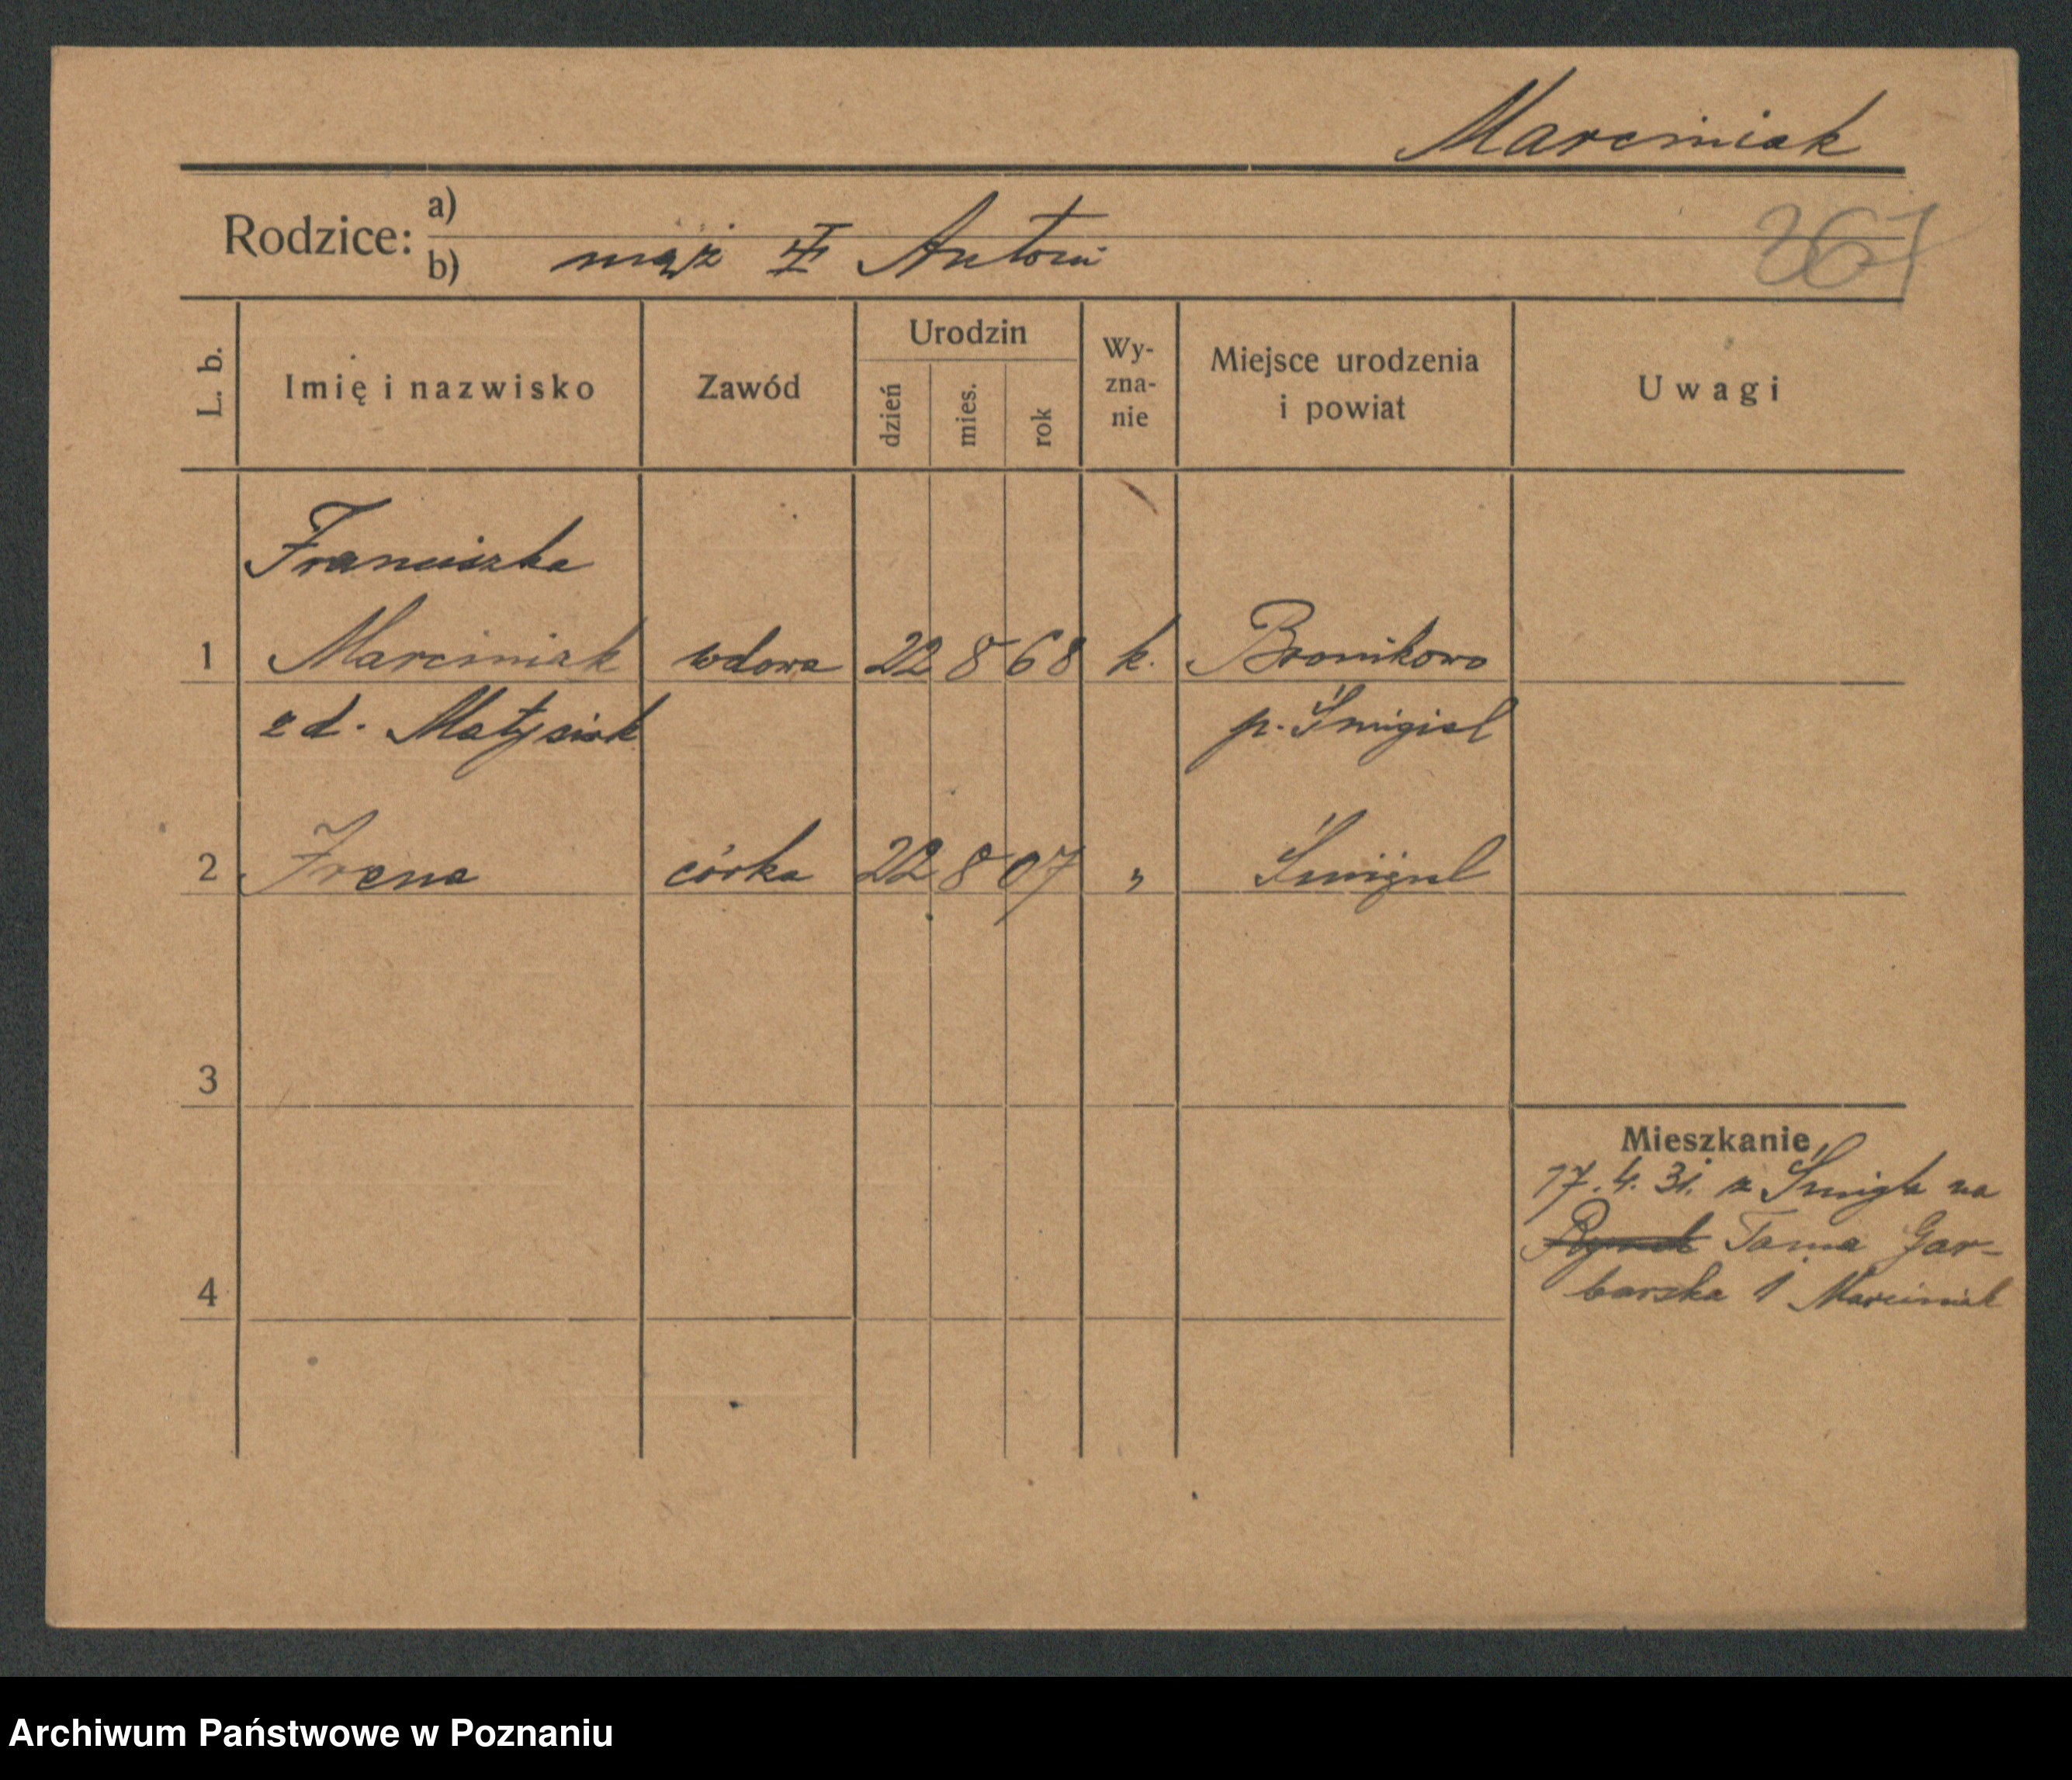 Marciniak
Rodzice:
a)
b) mąż Antoni
267
L. b.
Imię i nazwisko
Zawód
Urodzin
dzień
mies.
rok
Wy-
zna-
nie
Miejsce urodzenia
i powiat
Uwagi
Franciszka
1 Marciniak wdowa 22 8 68 k. Bronikowo
z d. Matysiak p. Śmigiel
2 Irena córka 22 8 07 " Śmigiel
3
Mieszkanie
17.4.31. z Śmigla na
Rynek Tama Gar-
4
barska 1 Marciniak
Archiwum Państwowe w Poznaniu